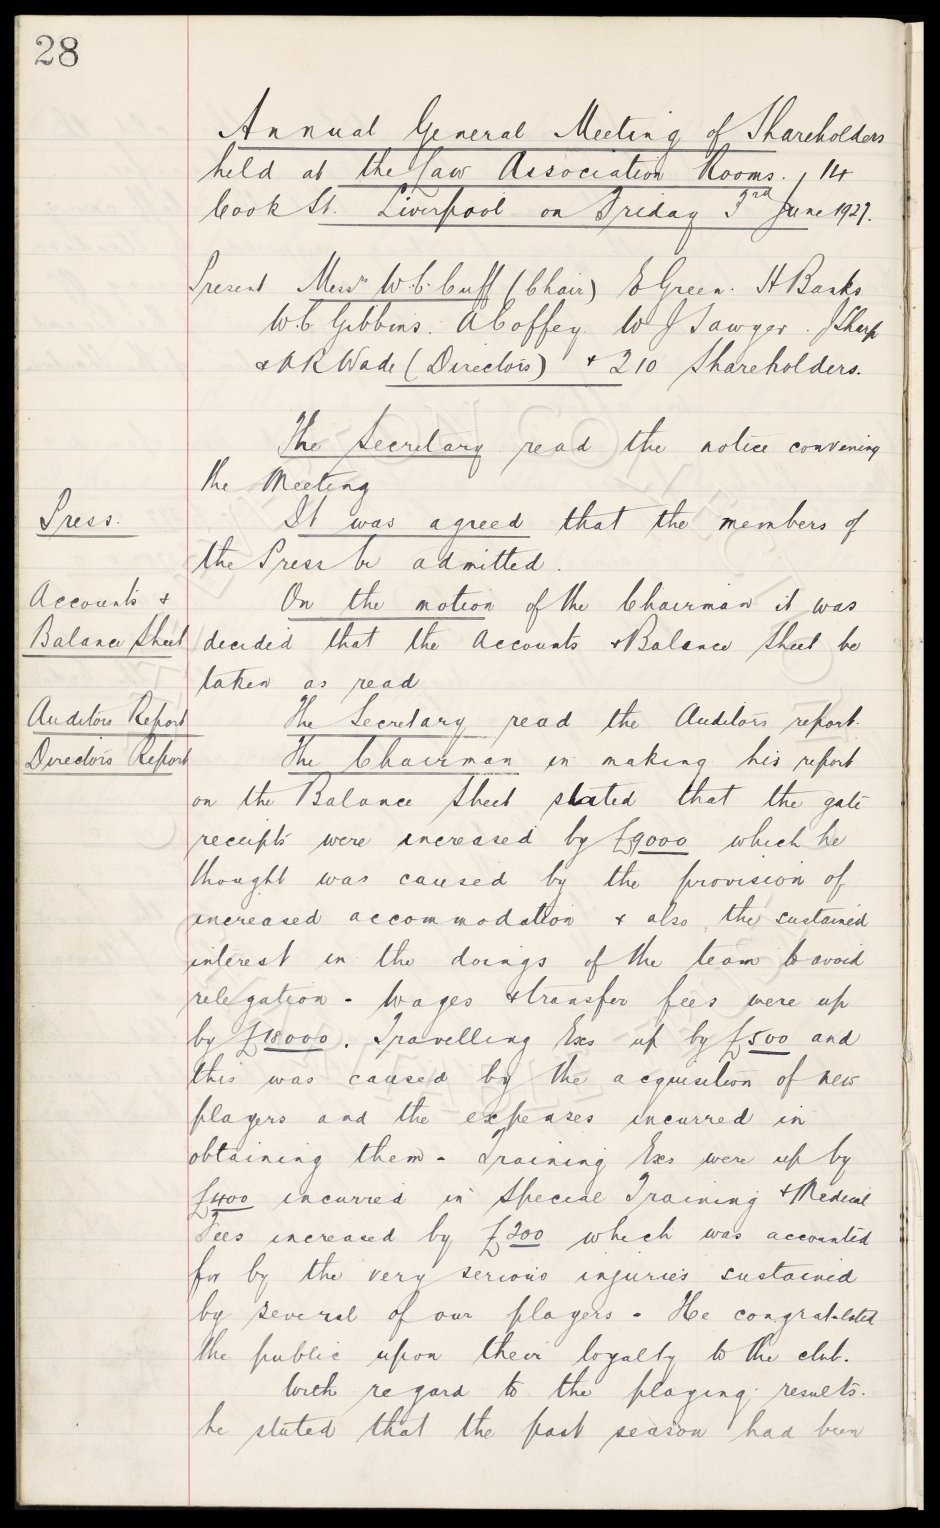 28
Annual General Meeting of Shareholders
held at the Law Association Rooms. 14
Cook St. Liverpool on Friday 3rd June 1927.
Present Messrs W.C. Cuff (Chair) E Green. H Banks
W.C Gibbins. A Coffey W J Sawyer. J Sharp
& A R Wade (Directors) + 210 Shareholders.
The Secretary read the notice convening
the Meeting
Press.
It was agreed that the members of
the Press be admitted.
Accounts &
Balance Sheet
On the motion of the Chairman it was
decided that the Accounts & Balance Sheet be
taken as read
Auditors Report
The Secretary read the Auditors report.
Directors Report
The Chairman in making his report
on the Balance Sheet stated that the gate
receipts were increased by £9000 which he
thought was caused by the provision of
increased accommodation & also the sustained
interest in the doings of the team to avoid
relegation - Wages & transfer fees were up
by £18000. Travelling Exs up by £500 and
this was caused by the acquisition of new
players and the expenses incurred in
obtaining them - Training Exs were up by
£400 incurred in Special Training & Medical
Fees increased by £200 which was accounted
for by the very serious injuries sustained
by several of our players - He congratulated
the public upon their loyalty to the club.
With regard to the playing results.
he stated that the past season had been